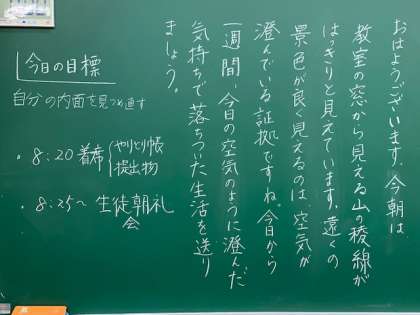 おはようございます。今朝は
教室の窓から見える山の稜線が
はっきりと見えています。遠くの
景色が良く見えるのは、空気が
澄んでいる証拠ですね。今日から
一週間、今日の空気のように澄んだ
気持ちで落ちついた生活を送り
ましょう。
今日の目標
自分の内面を見つめ直す
・8:20 着席 やりとり帳
提出物
・8:25〜 生徒朝礼
会